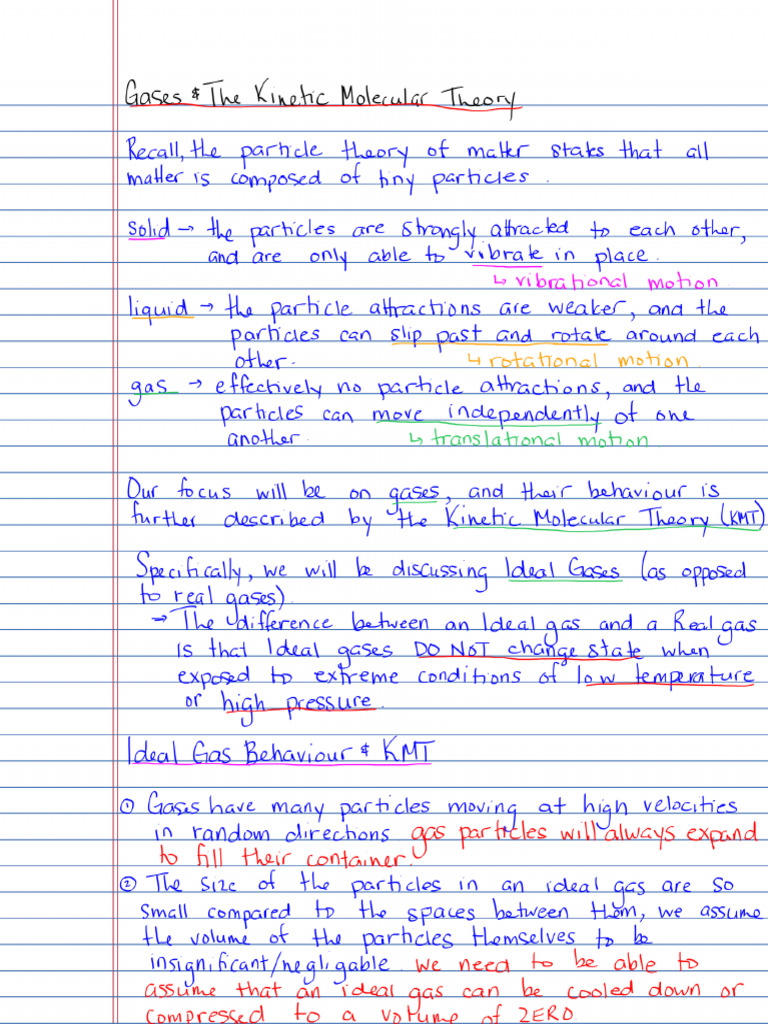 Gases & The Kinetic Molecular Theory
Recall, the particle theory of matter states that all
matter is composed of tiny particles.
solid → the particles are strongly attracted to each other,
and are only able to vibrate in place.
↳ vibrational motion
liquid → the particle attractions are weaker, and the
particles can slip past and rotate around each
other. ↳ rotational motion
gas → effectively no particle attractions, and the
particles can move independently of one
another. ↳ translational motion
Our focus will be on gases, and their behaviour is
further described by the Kinetic Molecular Theory (KMT)
Specifically, we will be discussing Ideal Gases (as opposed
to real gases).
→ The difference between an Ideal gas and a Real gas
is that Ideal gases DO NOT change state when
exposed to extreme conditions of low temperature
or high pressure.
Ideal Gas Behaviour & KMT
① Gases have many particles moving at high velocities
in random directions gas particles will always expand
to fill their container.
② The size of the particles in an ideal gas are so
small compared to the spaces between them, we assume
the volume of the particles themselves to be
insignificant/negligable. we need to be able to
assume that an ideal gas can be cooled down or
compressed to a volume of ZERO